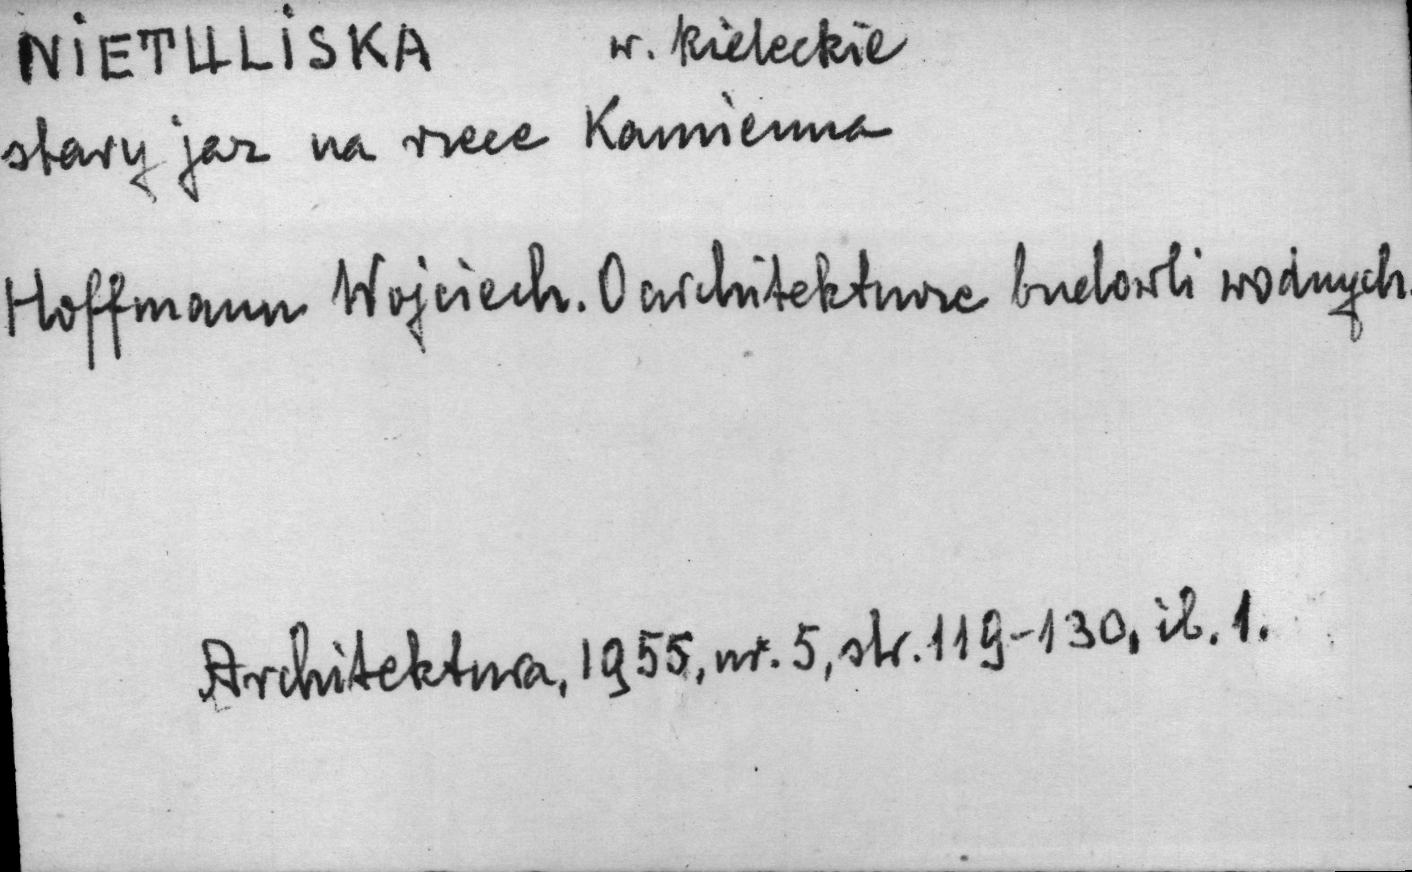 NIETULISKA w. kieleckie
stary jaz na rzece Kamienna
Hoffmann Wojciech. O architekturze budowli wodnych.
Architektura, 1955, nr. 5, str. 119-130, il. 1.